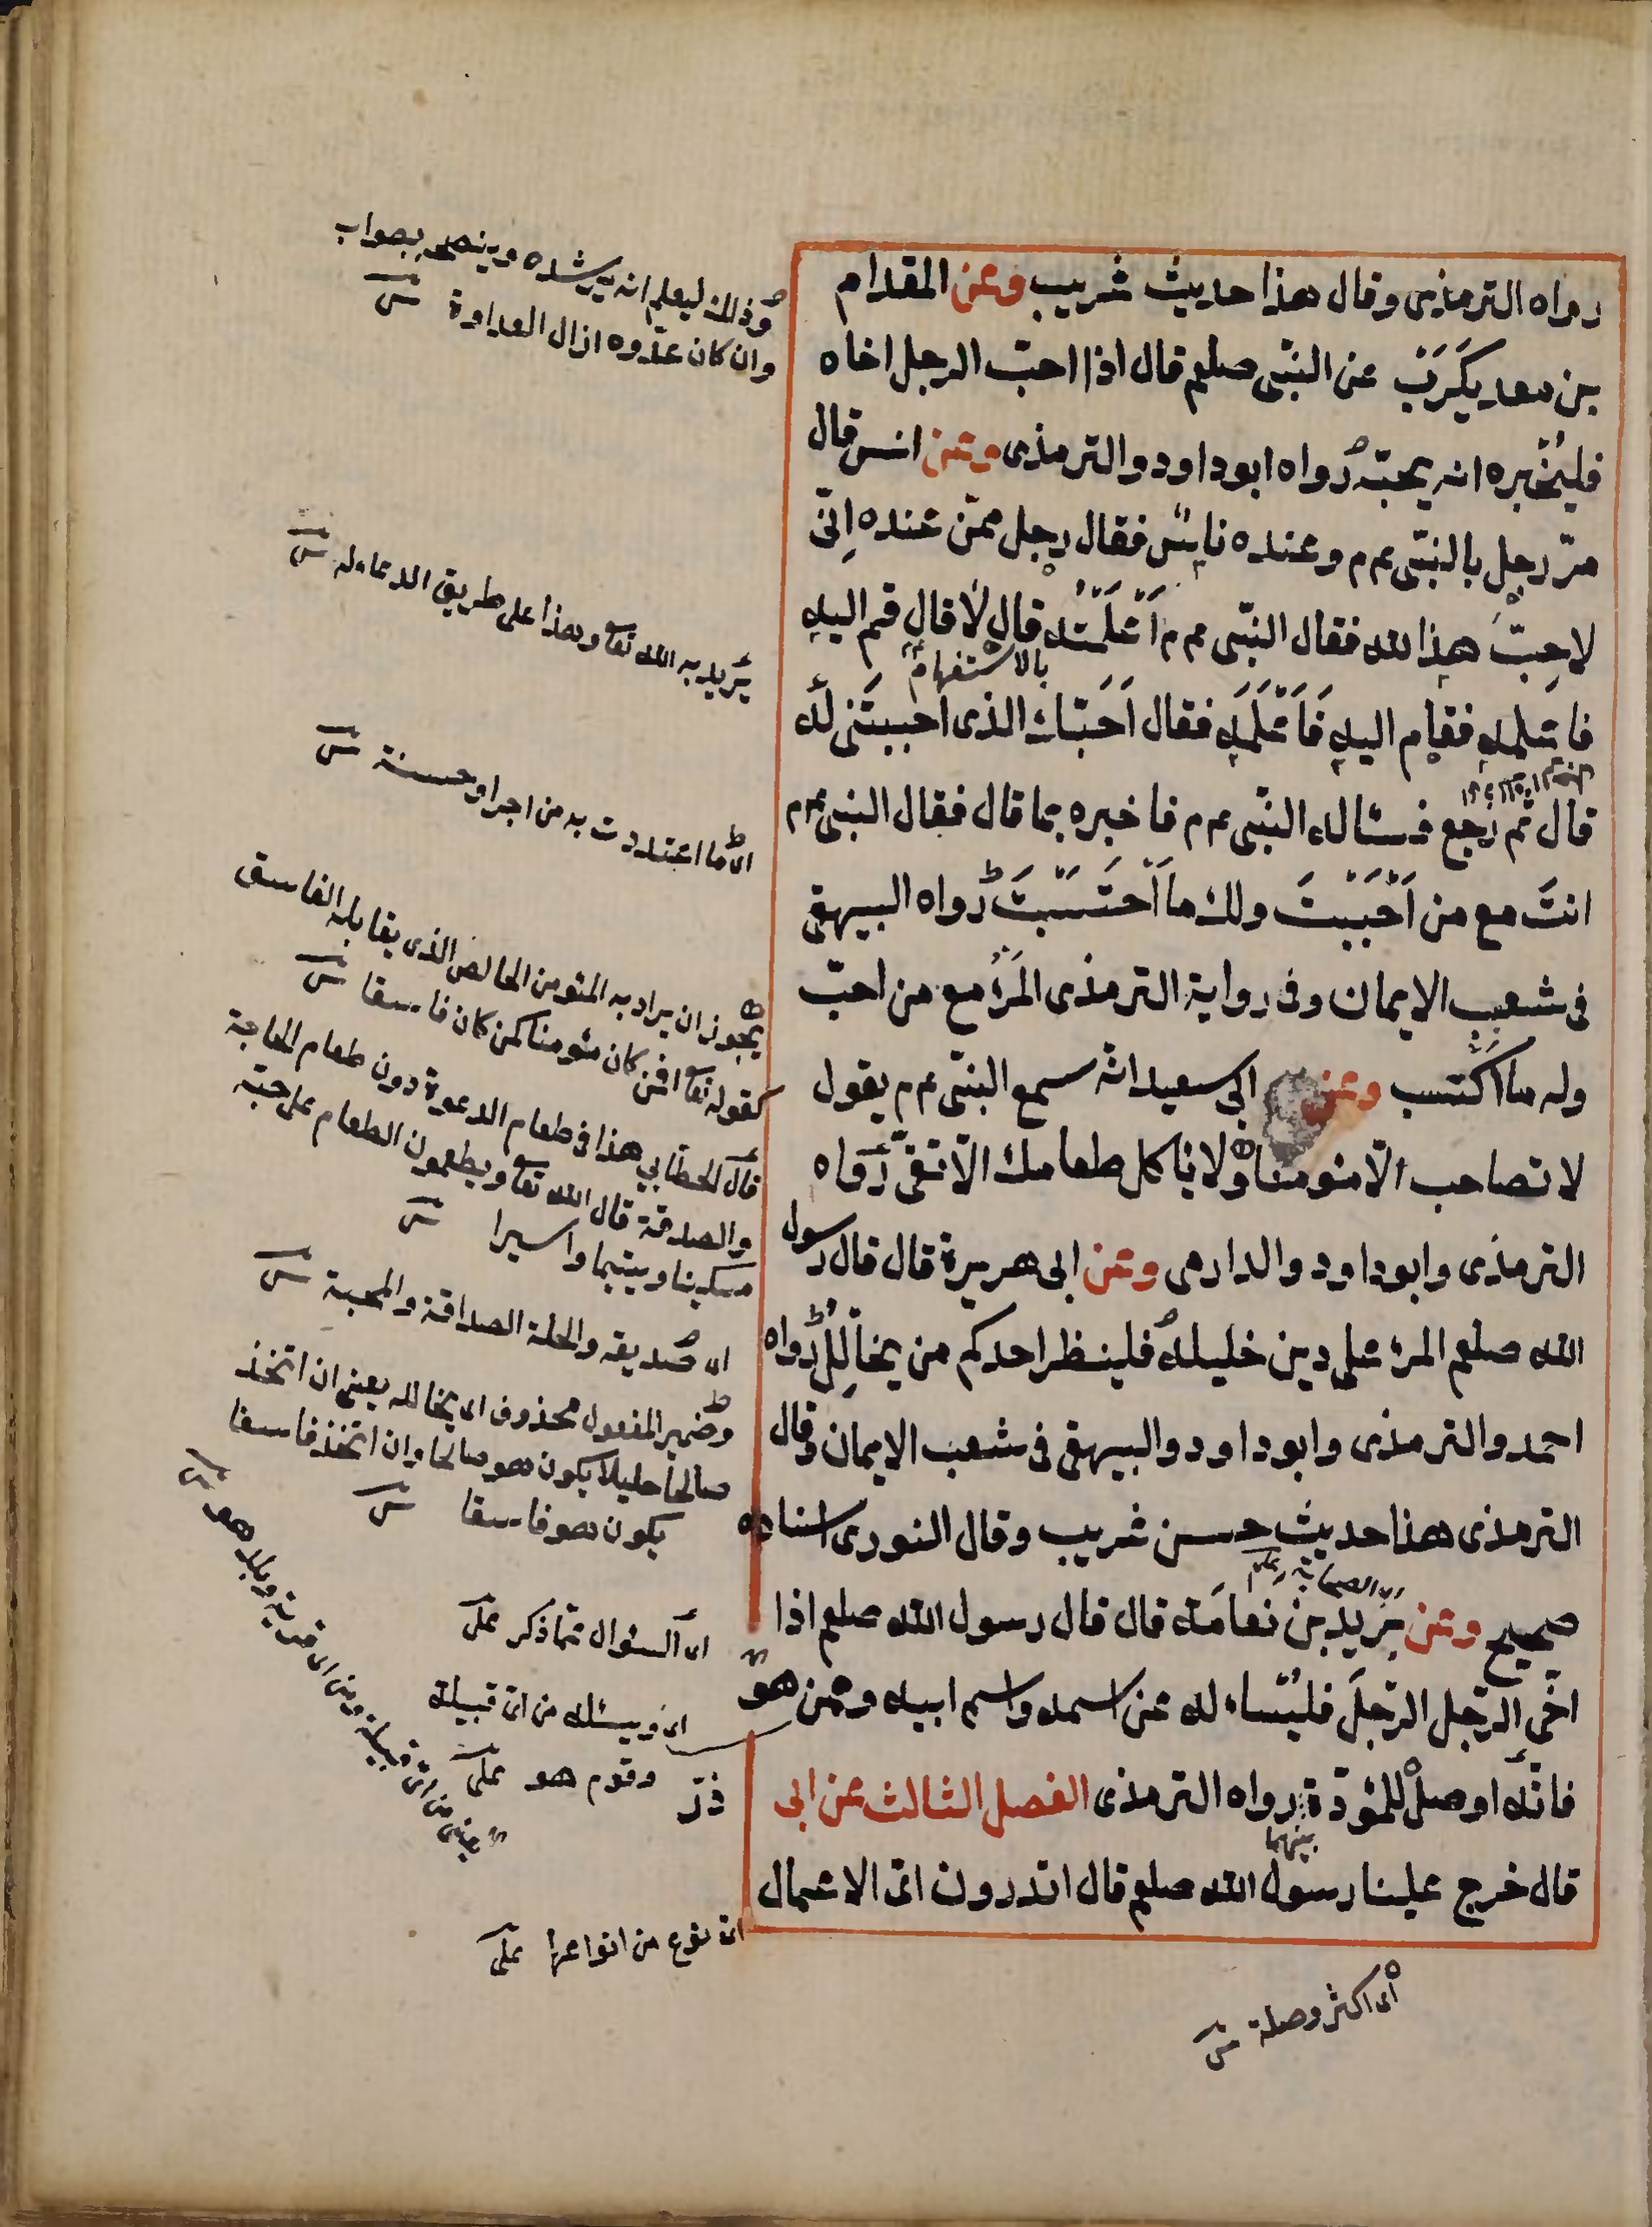 رواه الترمذى وقال هذا حديث غريب وعن المقدام
بن معد يكَرَبَ عن النبّى صلعم قال اذا احبّ الرجل اخاه
فليُخْبره انه يحبّه رواه ابوداود والترمذى وعن انس قال
مرّ رجل بالنبّى عم م وعنده ناس فقال رجل ممّن عنده اِنّى
لاحِبّ هذا لله فقال النبّى عم م اَعْلَمْتَه قال لا قال قم اليه
بالاستفهام
فاعلمه فقام اليه فَاَعْلَمَه فقال اَحَبّك الذى احببتَنى له
قال ثم رجع فسئاله النبّى عم م فاخبره بما قال فقال النبى عم م
انتَ مع من اَحْبَبْتَ ولك ما اَحْتَسَبْتَ رواه البيهقى
فى شعب الايمان وفى رواية الترمذى المَرْءُ مع من احبّ
وله ما اكتَسب وعن ابى سعيد انه سمع النبّى عم م يقول
لا تصاحب الّا مئومنا ولا ياكل طعامك الّا تقىّ رواه
الترمذى وابوداود والدارمى وعن ابى هريرة قال قال رسول
الله صلعم المرء على دين خليله فلينظر احدكم من يخالِلُ رواه
احمد والترمذى وابوداود والبيهقى فى شعب الايمان وقال
الترمذى هذا حديث حسن غريب وقال النووى اسناده
صحيح وعن يَزيد بن نعامَة قال قال رسول الله صلعم اذا
اخَى الرّجل الرّجلَ فليُسْاءله عن اسمه واسم ابيه وممن هو
فانّه اوصل للمئودّة رواه الترمذى الفصل الثالث عن ابى
بينهما
ذرّ
قال خرج علينا رسول الله صلعم قال اتدرون اىّ الاعمال
وذلك ليعلم انه يرشده وينصحه بصواب
وان كان عدوه ازال العداوة
يريد به الله تعا وهذا على طريق الدعاء له
اى ما اعتددت به من اجر او حسنة
يجوز ان يراد به المئومن الخالص الذى يقابله الفاسق
كقوله تعا افمن كان مئومنا كمن كان فاسقا
قال الخطابي هذا فى طعام الدعوة دون طعام الحاجة
والصدقة قال الله تعا ويطعمون الطعام على حبّه
مسكينا ويتيما واسيرا
اى صديقه والخلة الصداقة والمحبة
وضمير المفعول محذوف اى يخالله يعنى ان اتخذ
صالحا خليلا يكون هو صالحا وان اتخذ فاسقا
يكون هو فاسقا
اى السئوال عمّا ذكر على
اى ويسئله من اىّ قبيلة
وقوم هو على
يعنى من اىّ قبيلة ومن اى قرية وبلد هو
اى نوع من انواعها على
اى اكثر وصلة